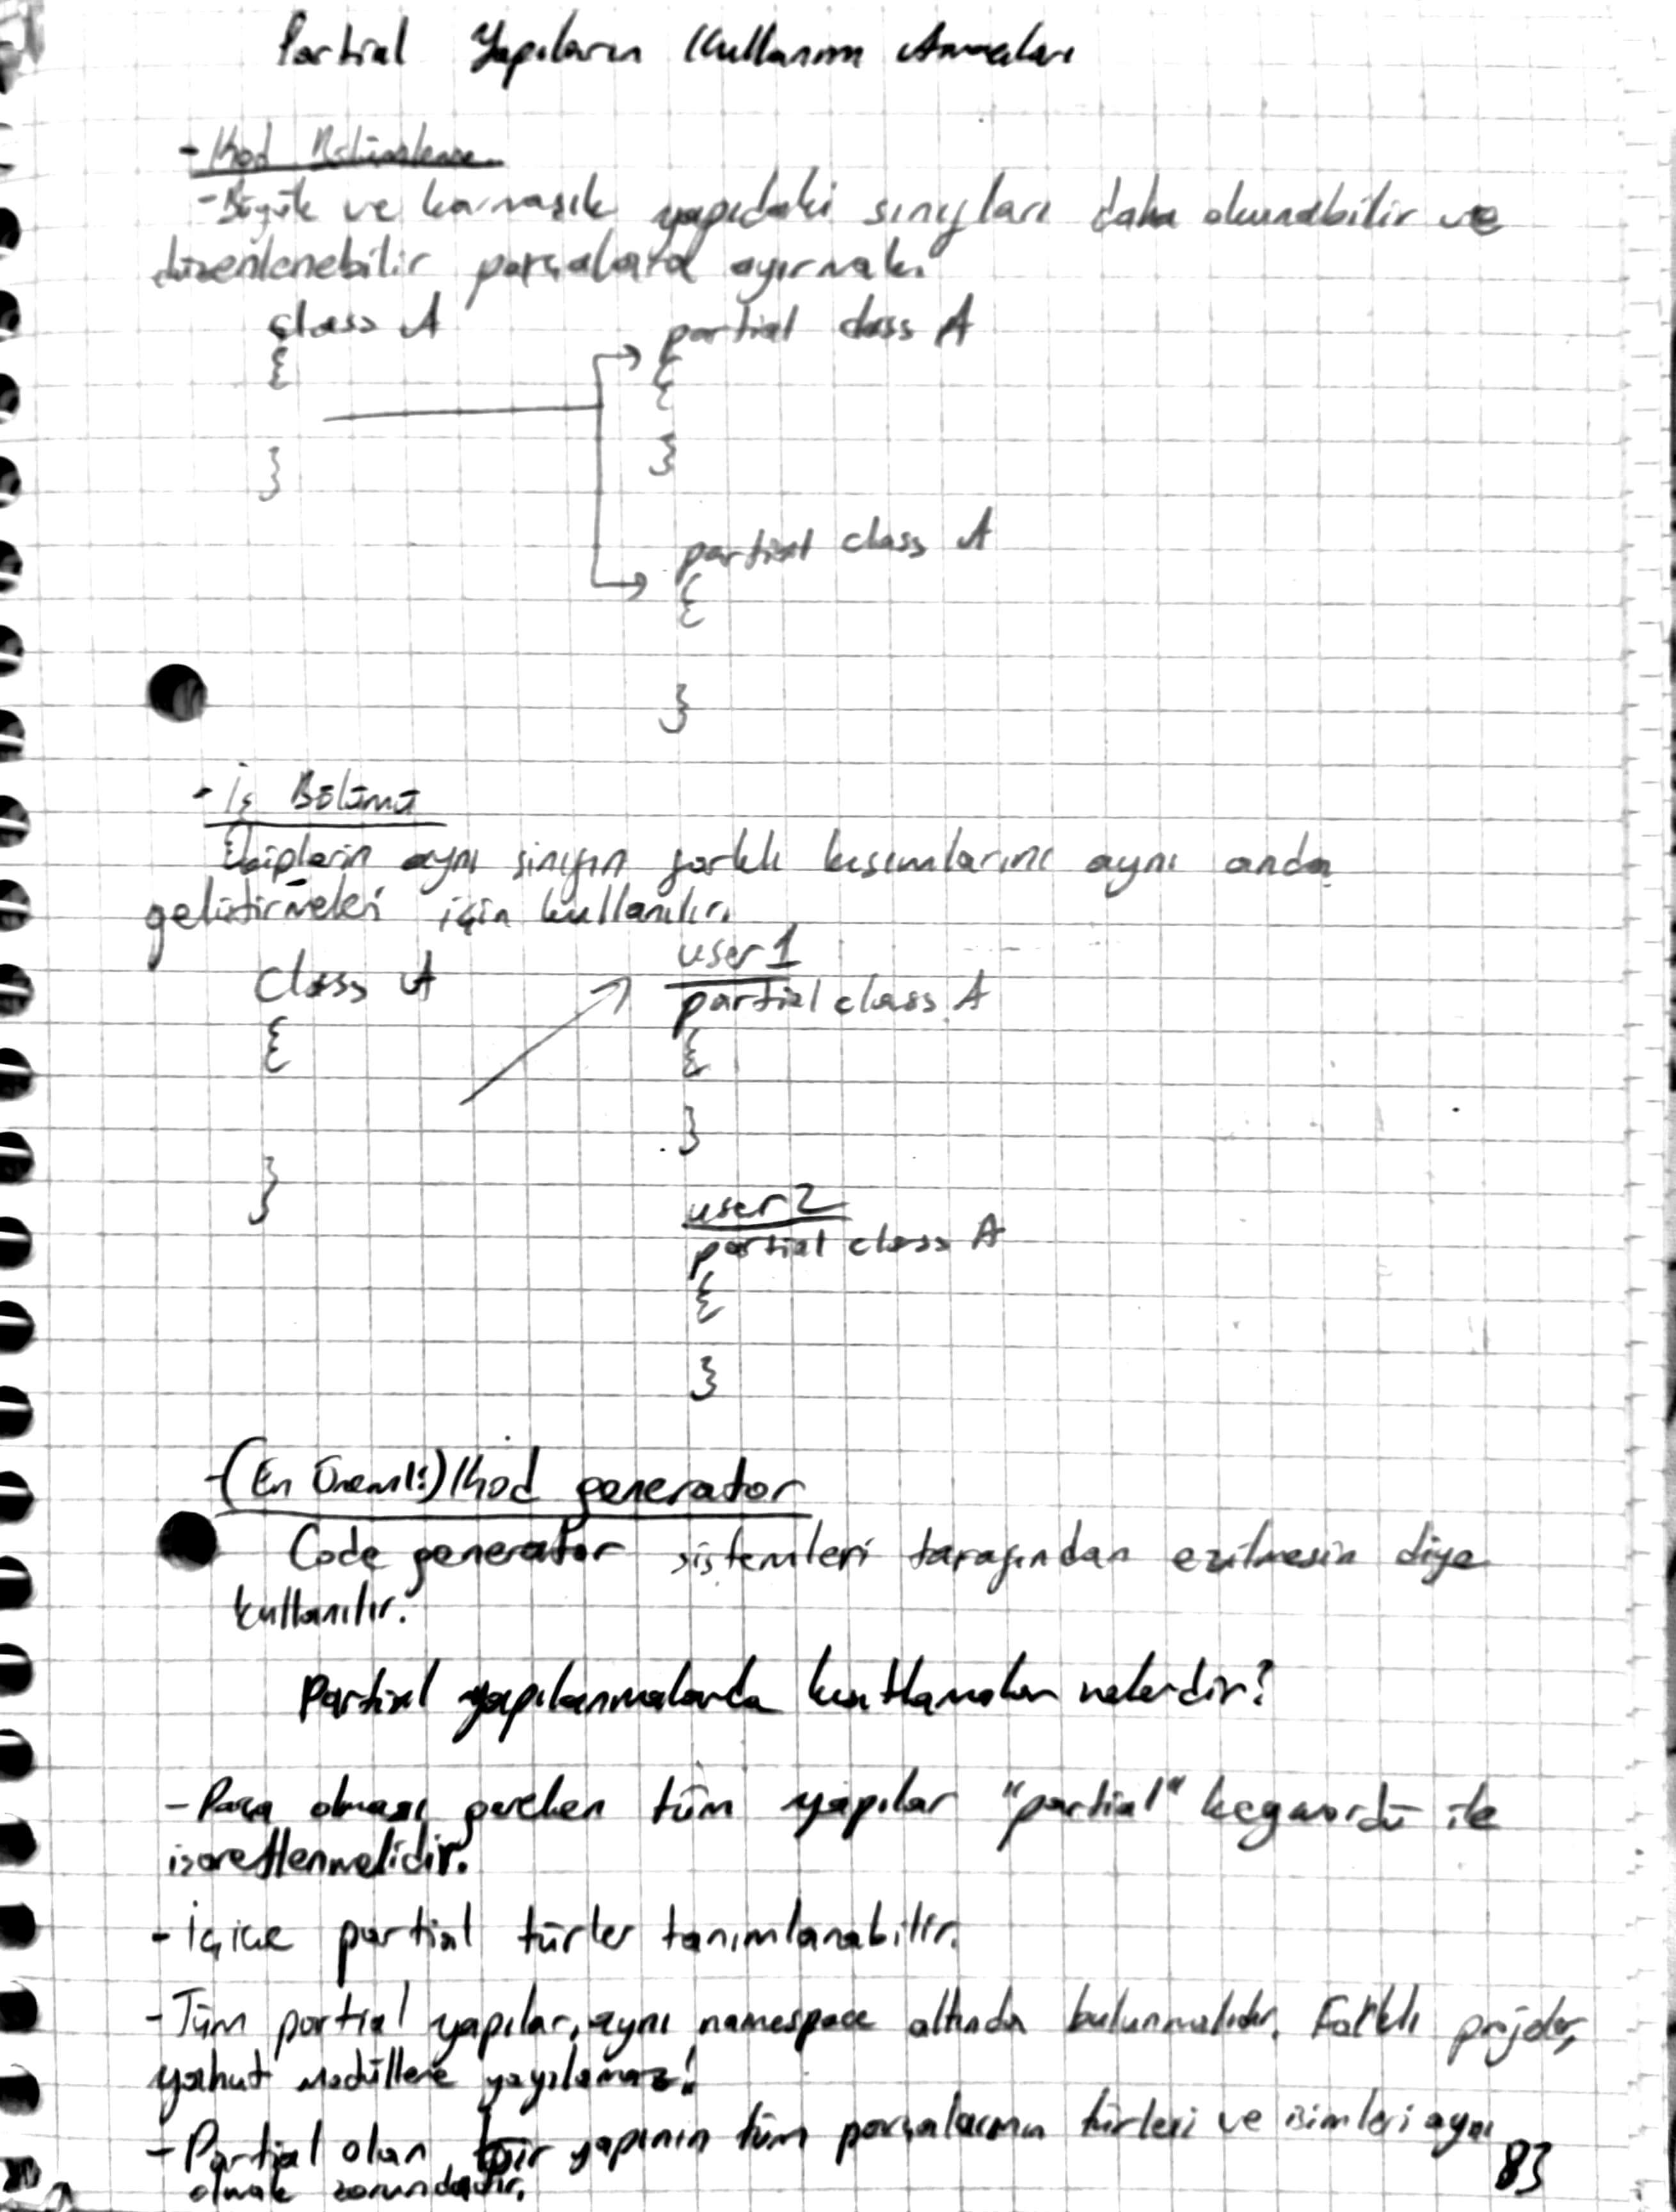 Partial Yapıların Kullanım Amaçları
- Kod Bölümleme
- Büyük ve karmaşık yapıdaki sınıfları daha okunabilir ve
düzenlenebilir parçalara ayırmak.
class A
{
}
partial class A
{
}
partial class A
{
}
- İş Bölümü
Ekiplerin aynı sınıfın farklı kısımlarını aynı anda
geliştirmeleri için kullanılır.
class A
{
}
user1
partial class A
{
}
user2
partial class A
{
}
-(En Önemli) Kod generator
Code generator sistemleri tarafından ezilmesin diye
kullanılır.
Partial yapılanmalarda kısıtlamalar nelerdir?
- Parça olması gereken tüm yapılar "partial" keywordü ile
işaretlenmelidir.
- İçiçe partial türler tanımlanabilir.
- Tüm partial yapılar, aynı namespace altında bulunmalıdır. Farklı projeler,
yahut modüllere yayılamaz!
- Partial olan bir yapının tüm parçalarının türleri ve isimleri aynı
olmak zorundadır.
83